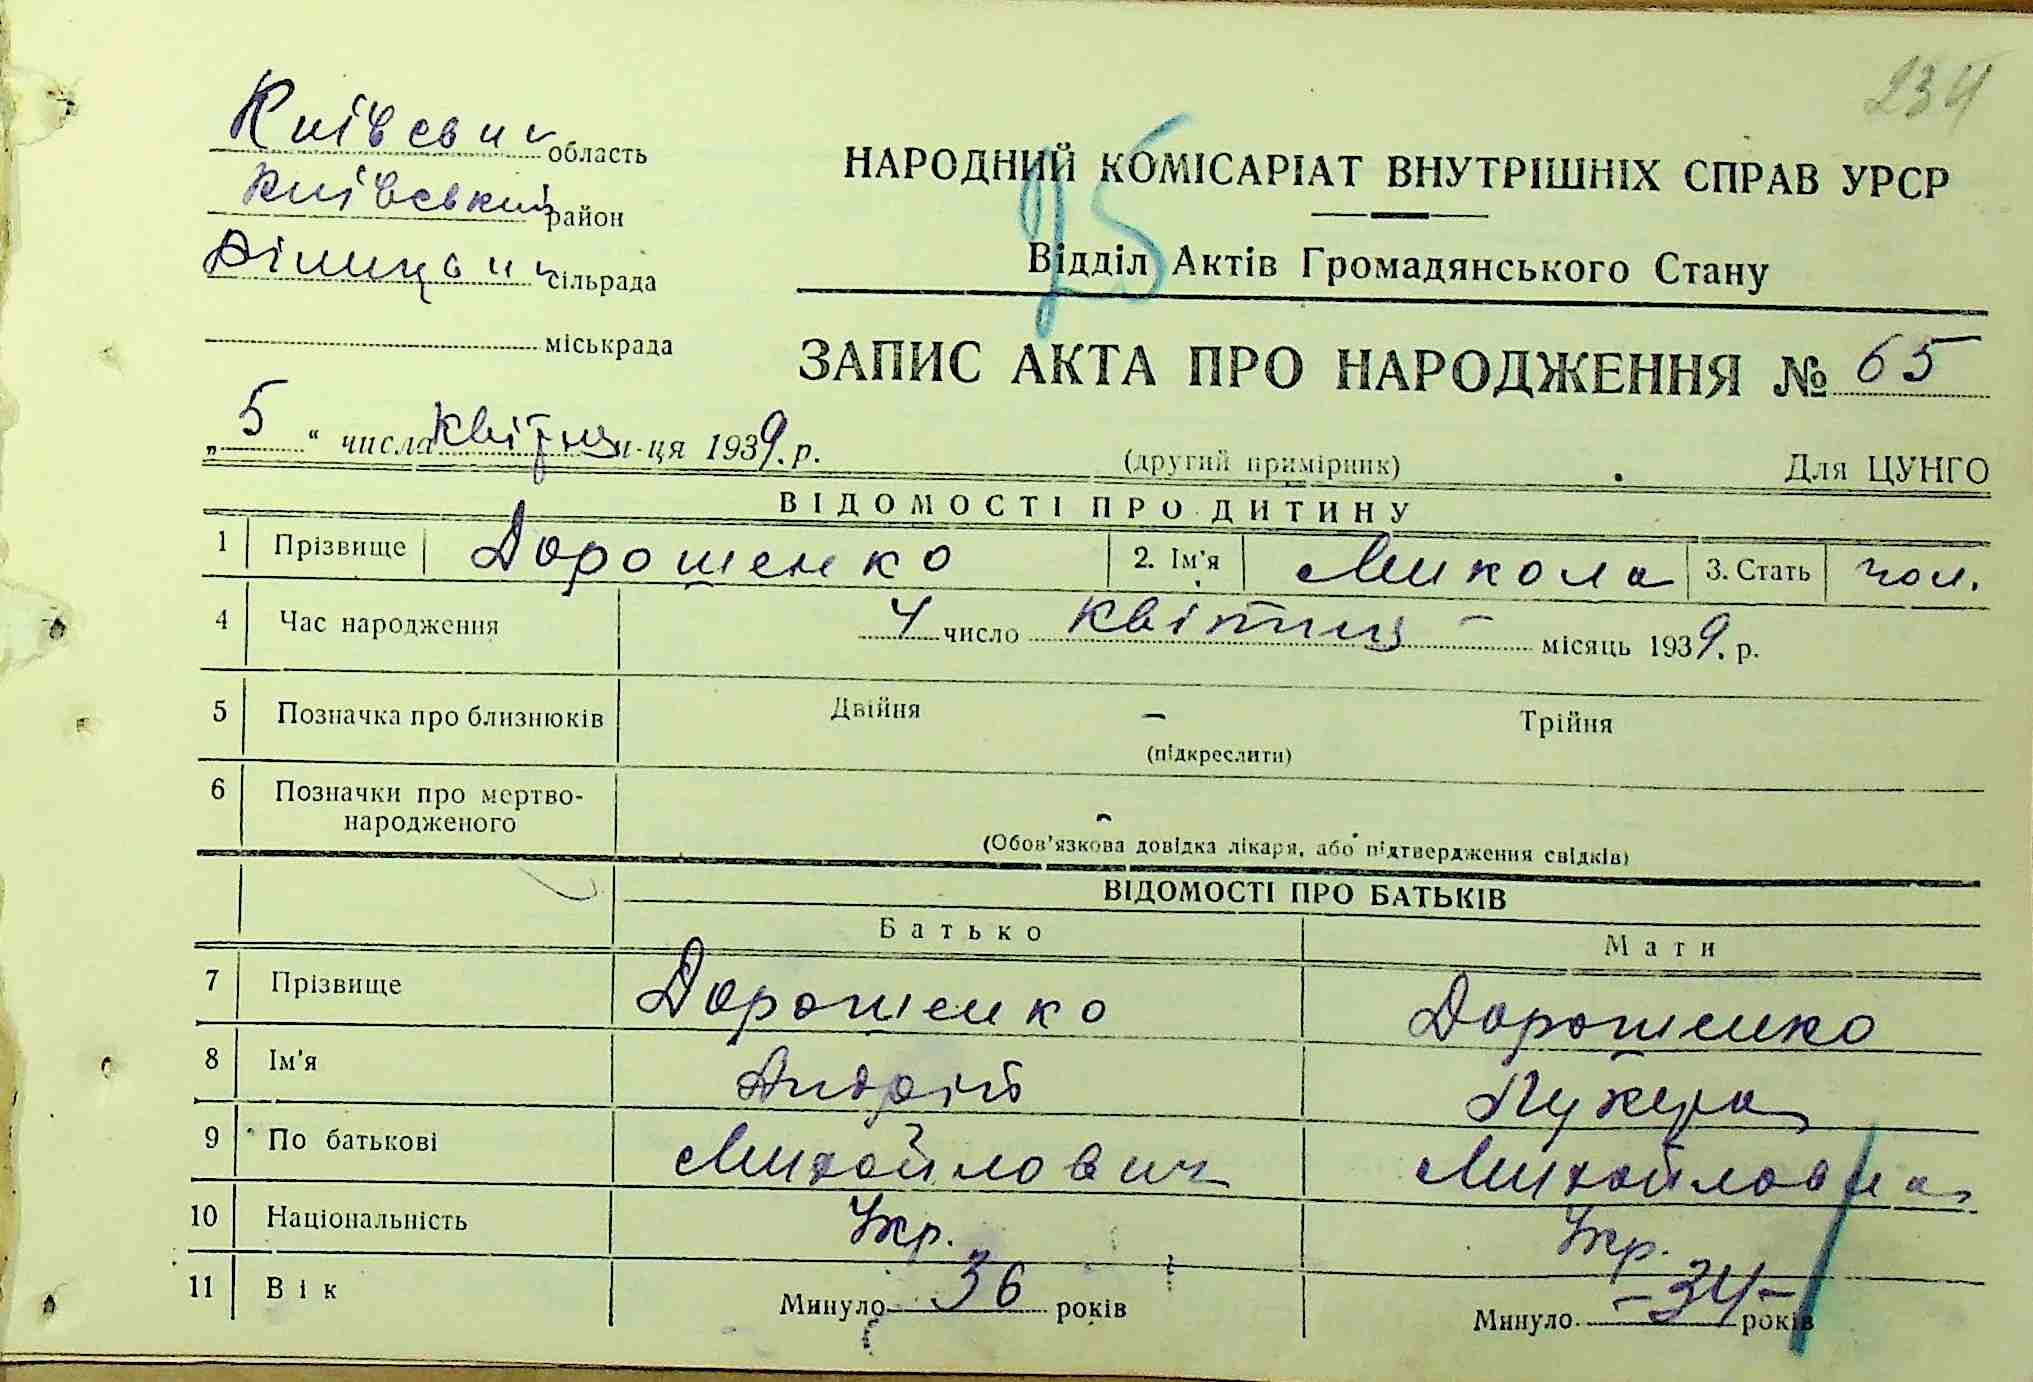 234
Київськ область
Київський район
Білицьк сільрада
міськрада
НАРОДНИЙ КОМІСАРІАТ ВНУТРІШНІХ СПРАВ УРСР
25
Відділ Актів Громадянського Стану
ЗАПИС АКТА ПРО НАРОДЖЕННЯ № 65
„ 5 “ числа квітня м-ця 1939. р.
(другий примірник) Для ЦУНГО
ВІДОМОСТІ ПРО ДИТИНУ
1 Прізвище Дорошенко 2. Ім'я Микола 3. Стать чол.
4 Час народження 4 число квітня місяць 1939. р.
5 Позначка про близнюків Двійня – Трійня
(підкреслити)
6 Позначки про мертво-
народженого -
(Обов'язкова довідка лікаря, або підтвердження свідків)
ВІДОМОСТІ ПРО БАТЬКІВ
Батько Мати
7 Прізвище Дорошенко Дорошенко
8 Ім'я Андрій
9 По батькові Михайлович Михайловна
10 Національність Укр. Укр.
11 Вік Минуло 36 років Минуло -34- років